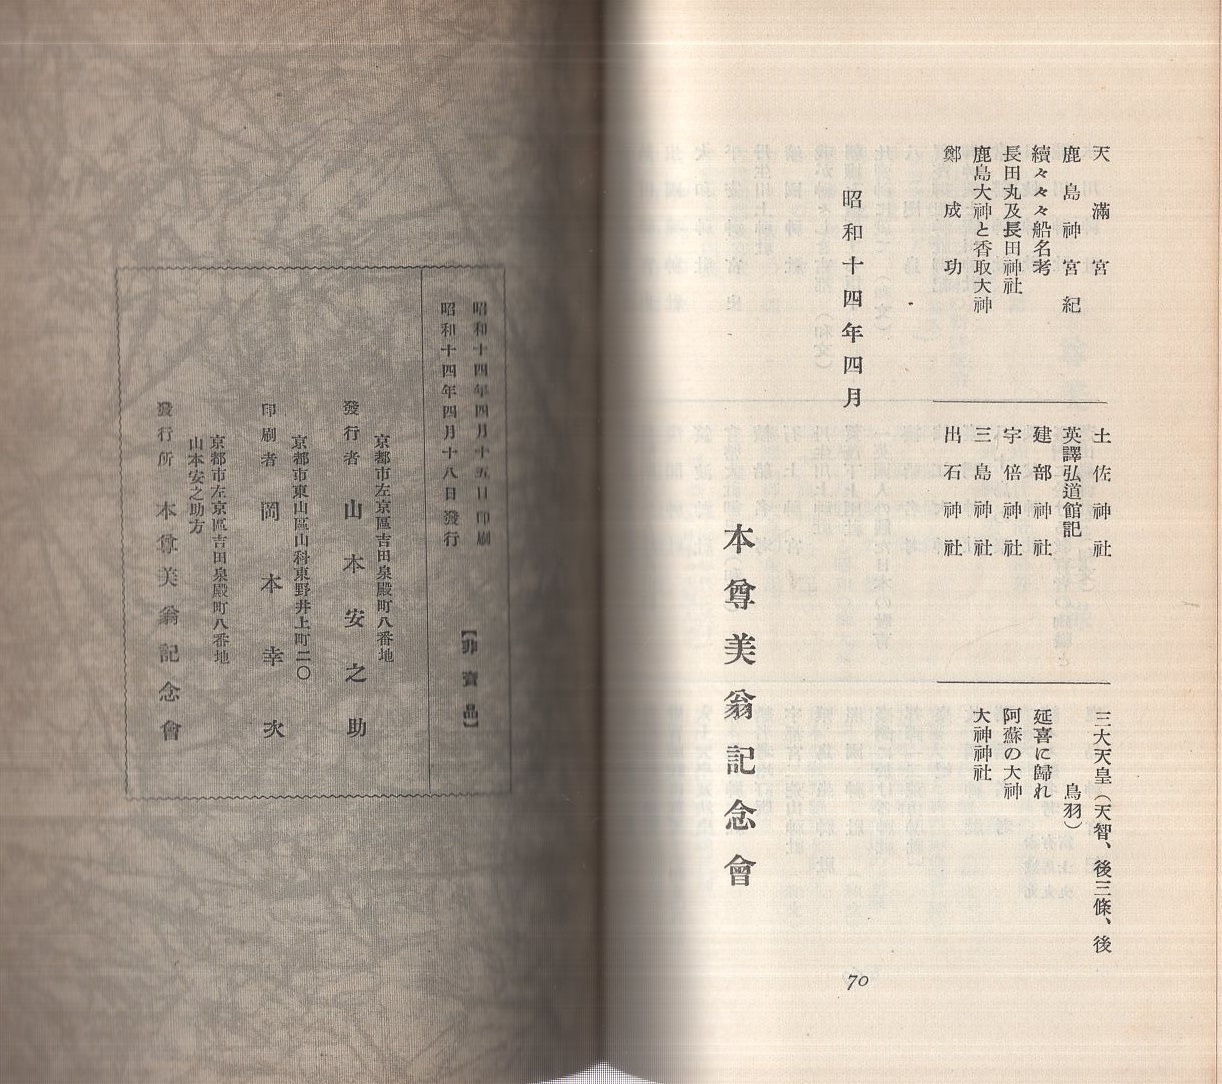 天滿宮
鹿島神宮紀
續々々々船名考
長田丸及長田神社
鹿島大神と香取大神
鄭成功
土佐神社
英譯弘道館記
建部神社
宇倍神社
三島神社
出石神社
三大天皇(天智、後三條、後
鳥羽)
延喜に歸れ
阿蘇の大神
大神神社
昭和十四年四月
本尊美翁記念會
70
昭和十四年四月十五日印刷
昭和十四年四月十八日發行
【非賣品】
京都市左京區吉田泉殿町八番地
發行者 山本安之助
京都市東山區山科東野井上町二〇
印刷者 岡本幸次
京都市左京區吉田泉殿町八番地
山本安之助方
發行所 本尊美翁記念會